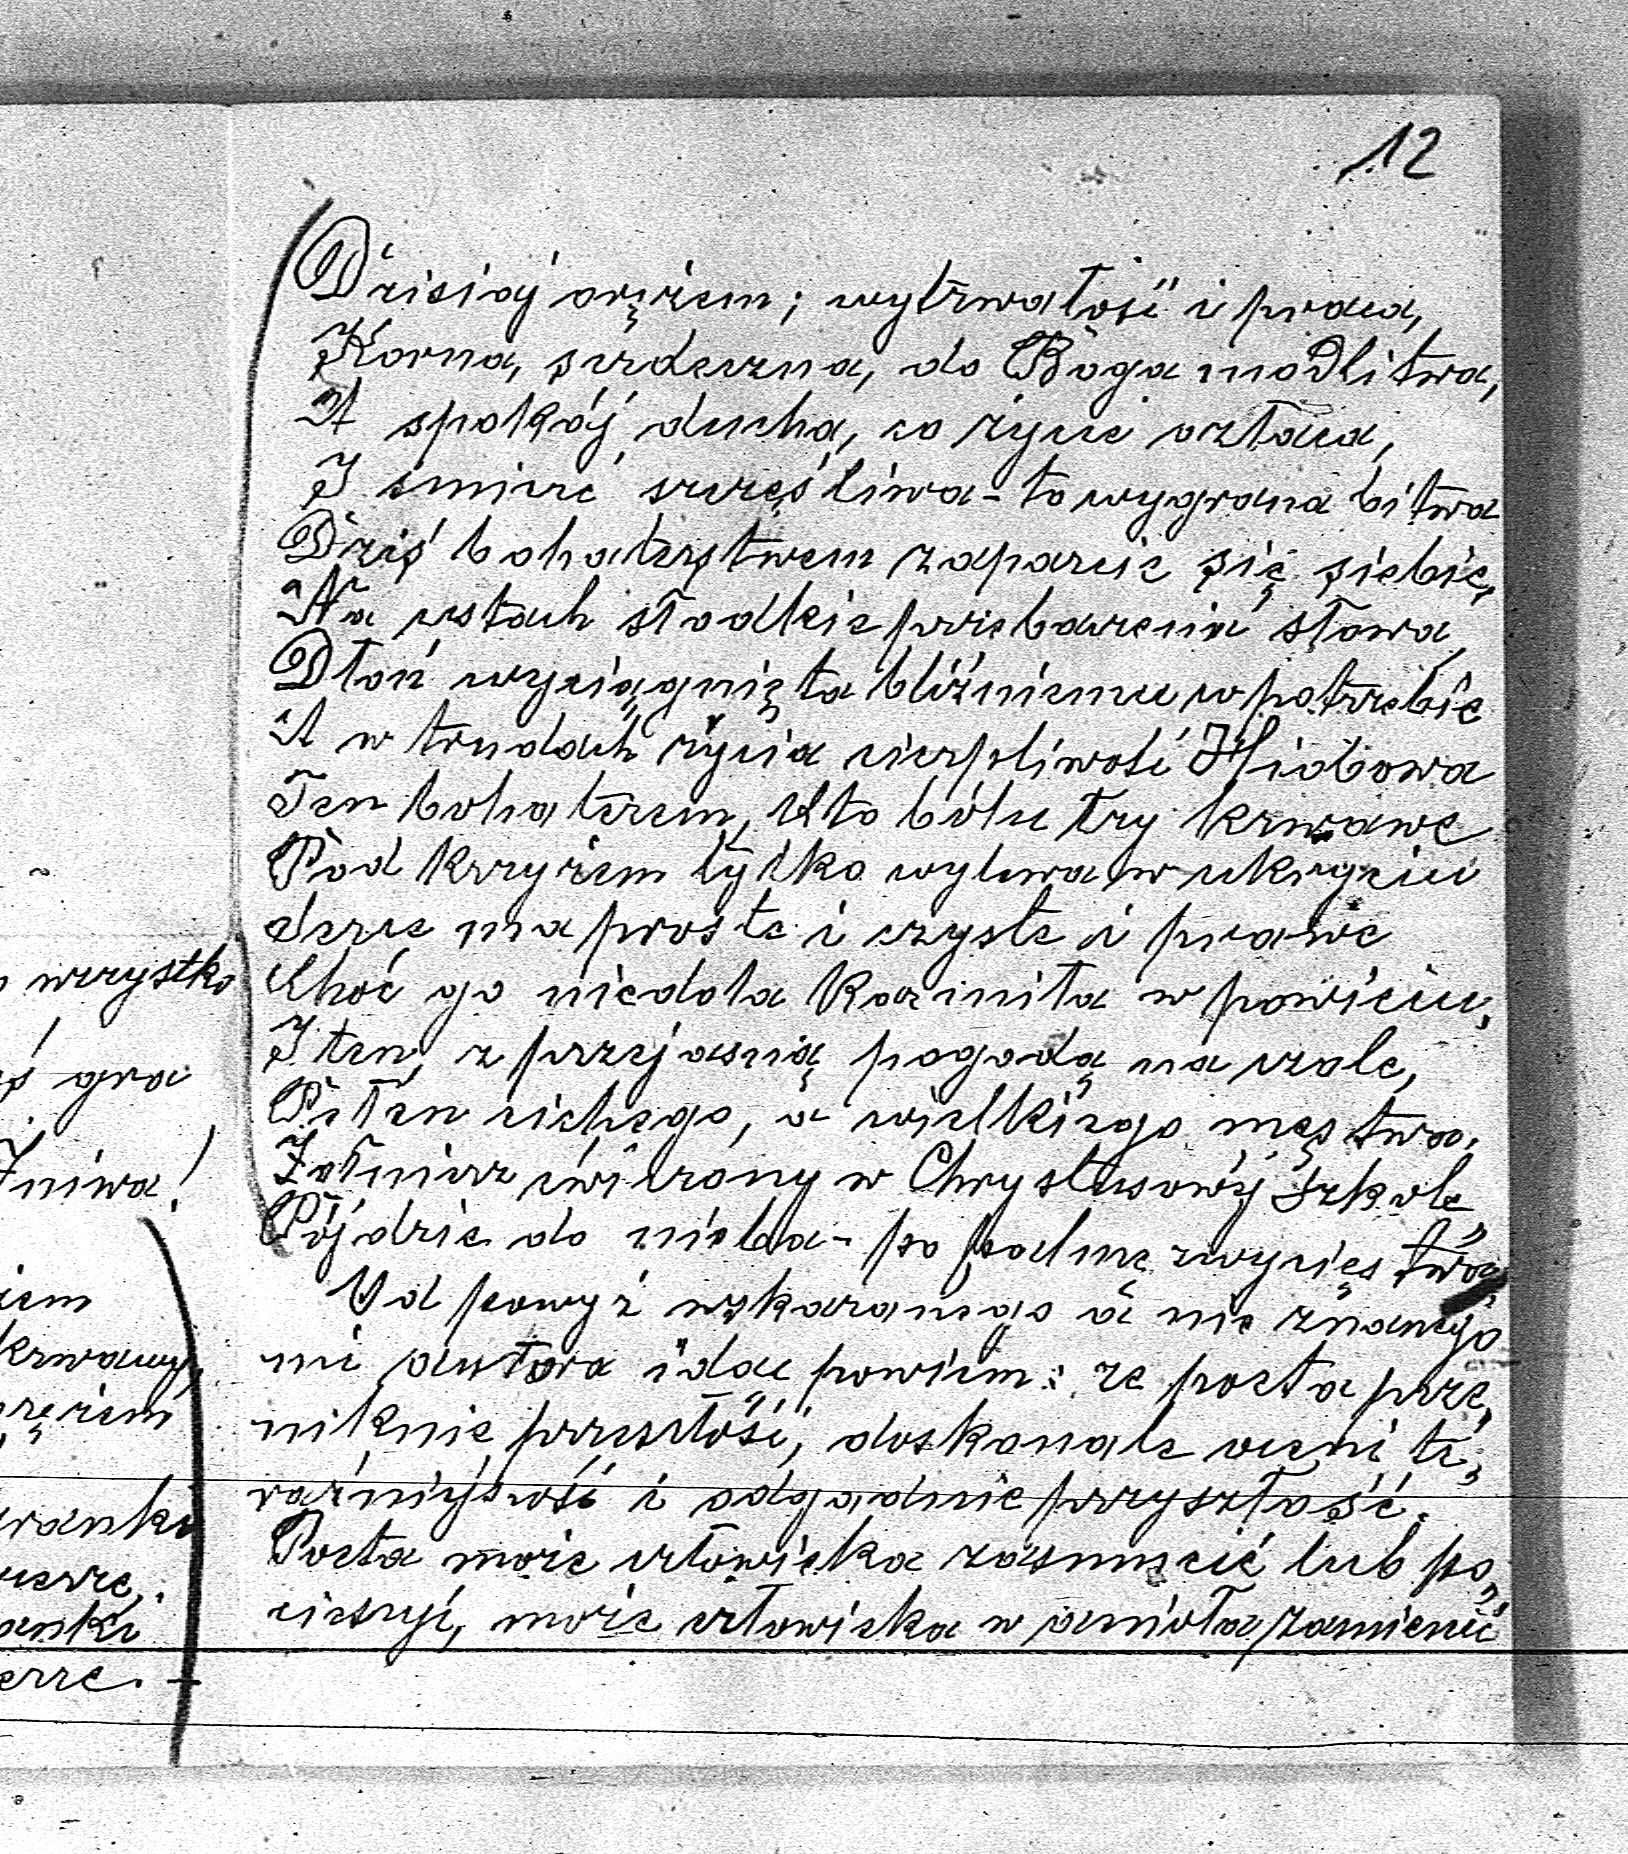 12
Dzisiaj orężem; wytrwałość i praca,
Korna, serdeczna, do Boga modlitwa,
A spokój ducha, co życie ozłaca,
I śmierć szczęśliwa - to wygrana bitwa
Dziś bohaterstwem zaparcie się siebie,
Na ustach słodkie przebaczenia słowa
Dłoń wyciągnięta bliźniemu w potrzebie
A w trudach życia cierpliwość Hiobowa
Ten bohaterem, kto bólu łzy krwawe
Pod krzyżem tylko wylewa w ukryciu
Serce ma proste i czyste i prawe
Choć go niedola karmiła w powiciu,
I ten, z przejasną pogodą na czole,
Pełen cichego, a wielkiego męstwa,
Żołnierz ćwiczony w Chrystusowéj szkole
Pójdzie do nieba - po palmę zwycięstwa,
Od powyż wskazanego a nie znanego
mi autora idąc powiem: że poeta prze,
niknie przeszłość, doskonale oceni te,
raźniejszość i odgadnie przyszłość.
Poeta może człowieka zasmucić lub po,
cieszyć, może człowieka w anioła zamienić
wszystko
gra
żniwa!
krwawy,
orężem